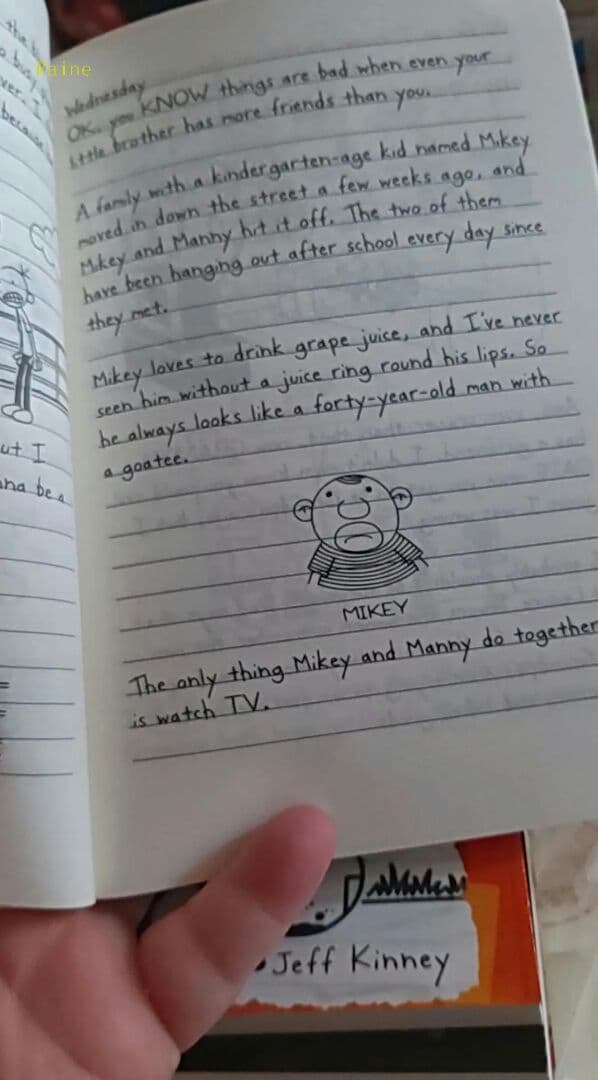 Raine
Wednesday
OK, you KNOW things are bad when even your
little brother has more friends than you.
A family with a kindergarten-age kid named Mikey
moved in down the street a few weeks ago, and
Mikey and Manny hit it off. The two of them
have been hanging out after school every day since
they met.
Mikey loves to drink grape juice, and I've never
seen him without a juice ring round his lips. So
he always looks like a forty-year-old man with
a goatee.
MIKEY
The only thing Mikey and Manny do together
is watch TV.
ut I
na be a
Jeff Kinney